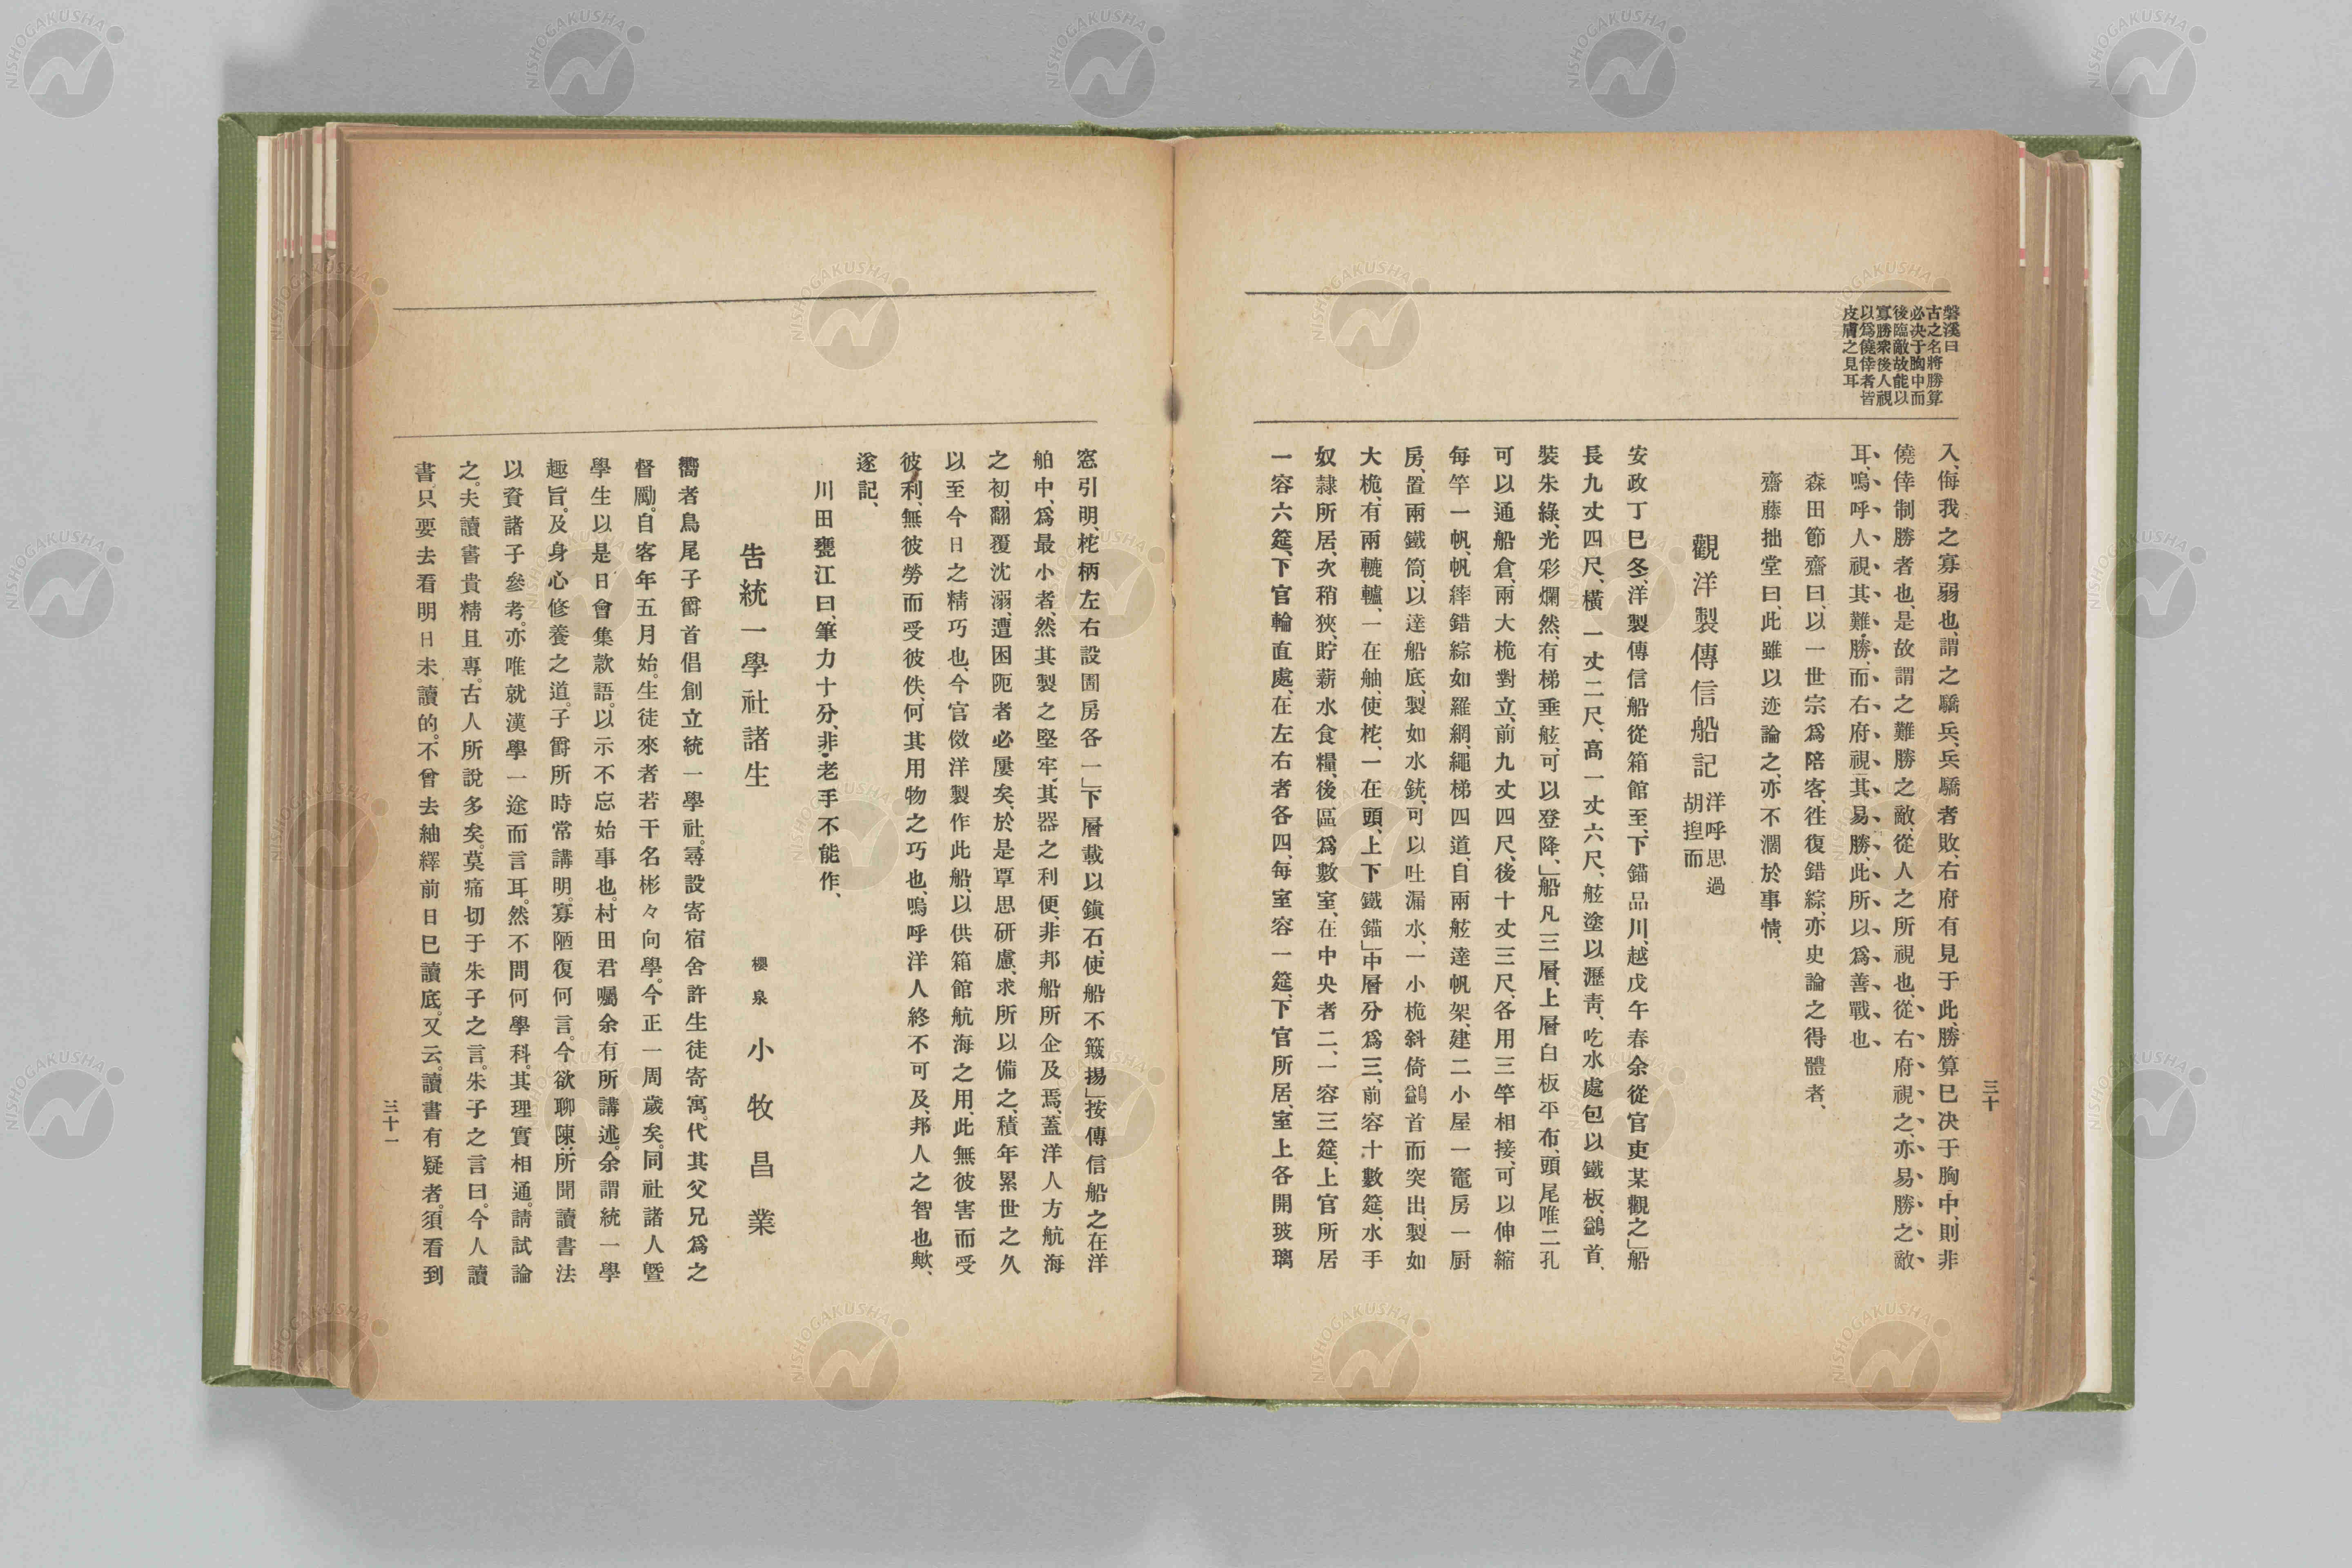 磐溪曰
古之名將勝算
必決于胸中而
後臨敵故能以
寡勝衆後人視
以爲僥倖者皆
皮膚之見耳
入、侮我之寡弱也、謂之驕兵、兵驕者敗、右府有見于此、勝算已決于胸中、則非
僥倖制勝者也、是故謂之難勝之敵、從人之所視也、從右府視之、亦易勝之敵
耳、嗚呼人視其難勝、而右府視其易勝、此所以爲善戰也
森田節齋曰、以一世宗爲陪客、徃復錯綜、亦史論之得體者、
齋藤拙堂曰、此雖以迹論之、亦不濶於事情、
觀洋製傳信船記 洋呼思過
胡揘而
安政丁巳冬、洋製傳信船從箱館至、下錨品川、越戊午春余從官吏某觀之」船
長九丈四尺、橫一丈二尺、高一丈六尺、舷塗以瀝靑、吃水處包以鐵板、鷁首、
裝朱綠、光彩爛然、有梯垂舷、可以登降、」船凡三層、上層白板平布、頭尾唯二孔
可以通船倉、兩大桅對立、前九丈四尺、後十丈三尺、各用三竿相接、可以伸縮
每竿一帆、帆繂錯綜如羅網、繩梯四道、自兩舷達帆架、建二小屋一竈房一厨
房、置兩鐵筒、以達船底、製如水銃、可以吐漏水、一小桅斜倚鷁首而突出、製如
大桅、有兩轆轤、一在舳、使柁、一在頭、上下鐵錨」中層分爲三、前容十數筵、水手
奴隷所居、次稍狹、貯薪水食糧、後區爲數室、在中央者二、一容三筵、上官所居
一容六筵、下官輪直處、在左右者各四、每室容一筵、下官所居、室上各開玻璃
三十
窓引明、柁柄左右設圊房各一」下層載以鎭石、使船不簸揚」按傳信船之在洋
舶中、爲最小者、然其製之堅牢、其器之利便、非邦船所企及焉、蓋洋人方航海
之初、翻覆沈溺、遭困阨者必屢矣、於是覃思研慮、求所以備之、積年累世之久
以至今日之精巧也、今官倣洋製作此船、以供箱館航海之用、此無彼害而受
彼利、無彼勞而受彼佚、何其用物之巧也、嗚呼洋人終不可及、邦人之智也歟、
遂記、
川田甕江曰、筆力十分、非老手不能作、
告統一學社諸生
櫻泉 小牧昌業
嚮者鳥尾子爵首倡創立統一學社。尋設寄宿舍許生徒寄寓。代其父兄爲之
督勵。自客年五月始。生徒來者若干名彬々向學。今正一周歲矣。同社諸人曁
學生以是日會集款語。以示不忘始事也。村田君囑余有所講述。余謂統一學
趣旨。及身心修養之道。子爵所時常講明。寡陋復何言。今欲聊陳所聞讀書法
以資諸子參考。亦唯就漢學一途而言耳。然不問何學科。其理實相通。請試論
之。夫讀書貴精且專。古人所說多矣。莫痛切于朱子之言。朱子之言曰。今人讀
書、只要去看明日未讀的。不曾去紬繹前日已讀底。又云。讀書有疑者。須看到
三十一